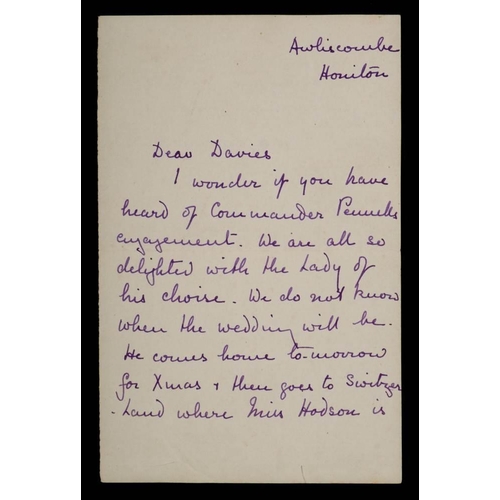 Awliscombe
Honiton
Dear Davies
I wonder if you have
heard of Commander Pennells
engagement. We are all so
delighted with the Lady of
his choise. We do not know
when the wedding will be.
He comes home to-morrow
for Xmas & then goes to Switzer
-land where Miss Hodson is